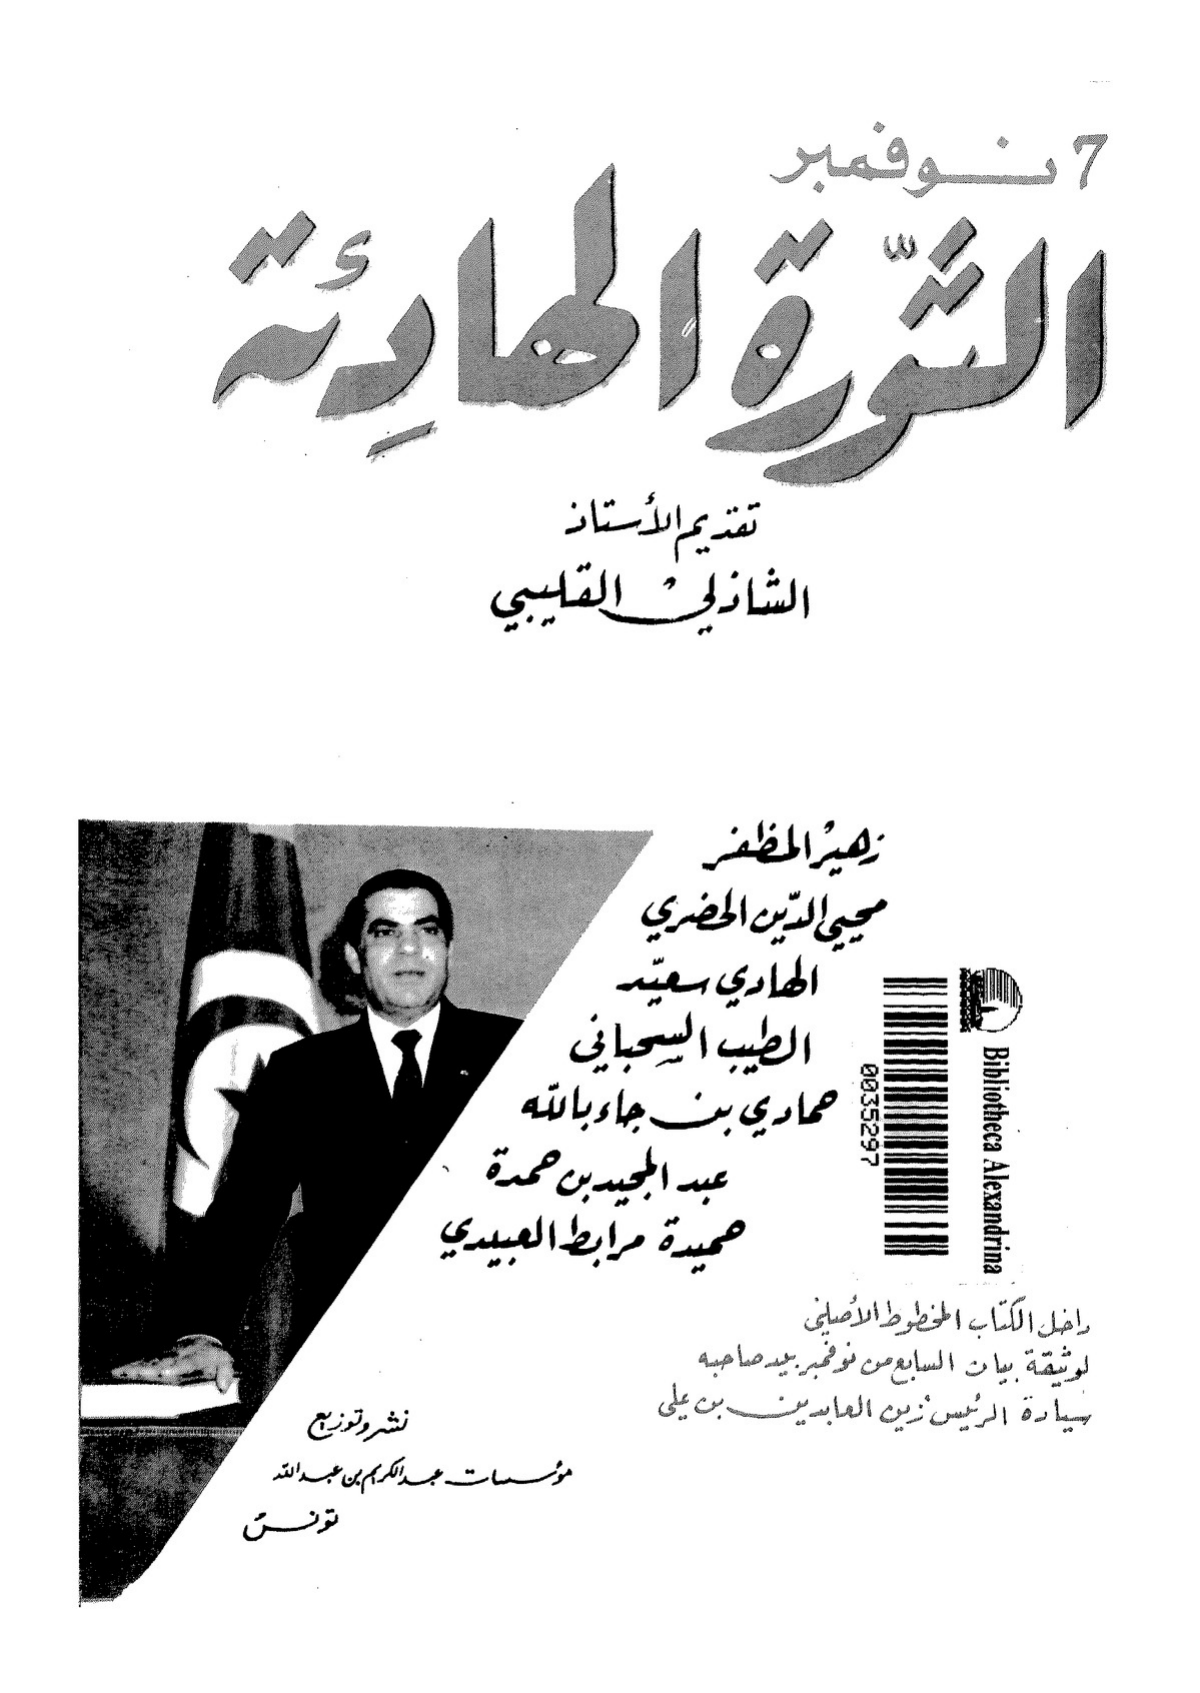 7 نوفمبر
الثّورة الهادِئة
تقديم الأستاذ
الشاذلي القليبي
زهير المظفر
محيي الدّين الحضري
الهادي سعيّد
الطيب السحباني
حمادي بن جاء بالله
عبد المجيد بن حمدة
حميدة مرابط العبيدي
0035297
Bibliotheca Alexandrina
داخل الكتاب المخطوط الأصلي
لوثيقة بيان السابع من نوفمبر بيد صاحبه
سيادة الرئيس زين العابدين بن علي
نشر وتوزيع
مؤسسات عبد الكريم بن عبد الله
تونس